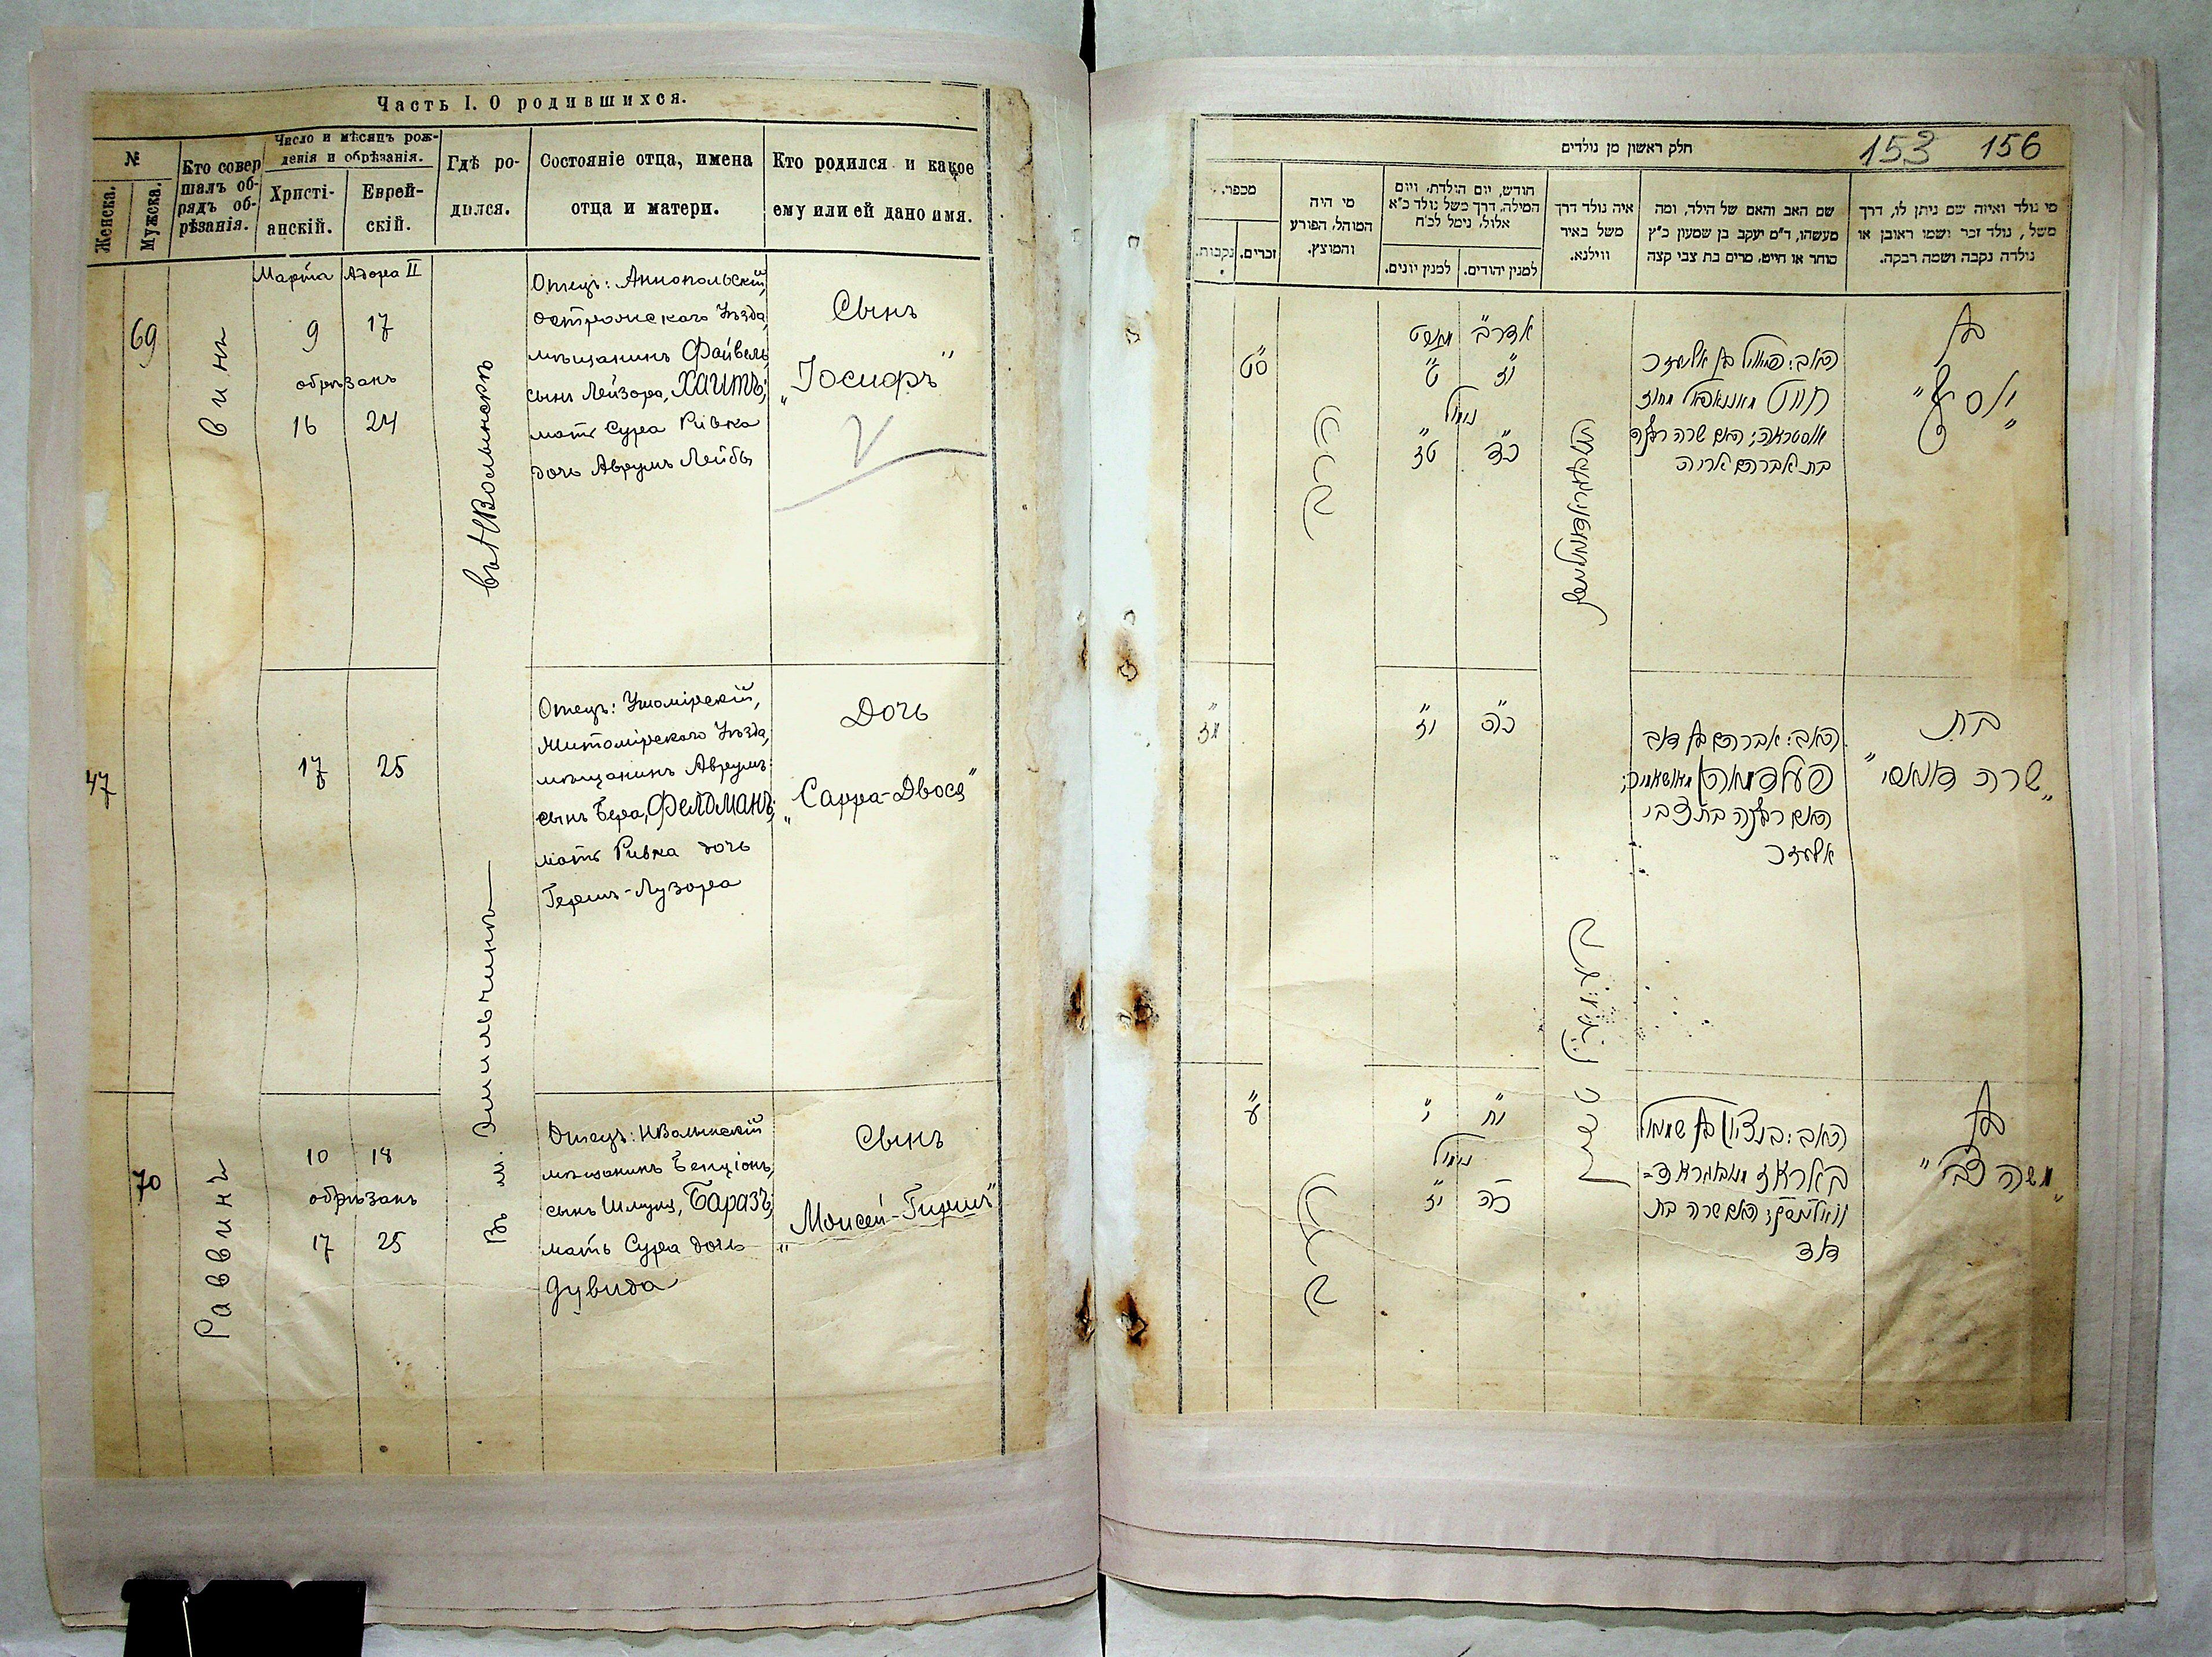 Часть I. О родившихся.
№
Женска.
Мужска.
Кто совер
шалъ об-
рядъ об-
рѣзанія.
Число и мѣсяцъ рож-
денія и обрѣзанія.
Христі-
анскій.
Еврей-
скій.
Гдѣ ро-
дился.
Состояніе отца, имена
отца и матери.
Кто родился и какое
ему или ей дано имя.
69
Марта
9
обрѣзанъ
16
Адора II
17
24
въ НВолынскѣ
Отецъ: Аннопольскій,
Острожскаго Уѣзда,
мѣщанинъ Файвель
сынъ Лейзора, Хаитъ;
мать Сура Ривка
дочь Аврумъ Лейбы
Сынъ
„Іосифъ"
47
17
25
Отецъ: Ушомірскій,
Житомірскаго Уѣзда,
мѣщанинъ Аврумъ
сынъ Бера, Фелдманъ;
мать Ривка дочь
Гершъ-Лузора
Дочь
„Сарра-Двося"
70
Раввинъ
10
18
обрѣзанъ
17
25
Въ м. Эмильчинѣ
Отецъ: НВолынскій
мѣщанинъ Бенціонъ,
сынъ Шмуля, Баразъ;
мать Сура дочь
Дувида
Сынъ
„Моисей-Гиршъ"
153 156
חלק ראשון מן נולדים
מי נולד ואיזה שם ניתן לו, דרך
משל, נולד זכר ושמו ראובן או
נולדה נקבה ושמה רבקה.
שם האב והאם של הילד, ומה
מעשהו, ד״מ יעקב בן שמעון כ״ץ
סוחר או חייט. מרים בת צבי קצה
איה נולד דרך
משל באיר
ווילנא.
חודש, יום הולדת, ויום
המילה, דרך משל נולד כ״א
אלול, נימל לכ״ח
למנין יהודים.
למנין יונים.
מי היה
המוהל, הפורע
והמוצץ.
מספר.
זכרים.
נקבות.
בן
„יוסף"
האב: פייוויל בן אליעזר
חייט מאנאפאל מחוז
אוסטראה; האם שרה רבקה
בת אברהם אריה
אדר ב׳
יז
נימול
כד
מארט
ט
טז
סט
בת
„שרה דוואסי"
האב: אברהם בן דוב
פעלדמאן מאושאמיר;
האם רבקה בת צבי
אליעזר
כה
יז
מז
בן
„משה צבי"
האב: בנציון בן שמואל
באראז מנאוואגראד=
וואלינסק; האם שרה בת
דוד
יח
י
נימול
כה
יז
ע
הרב